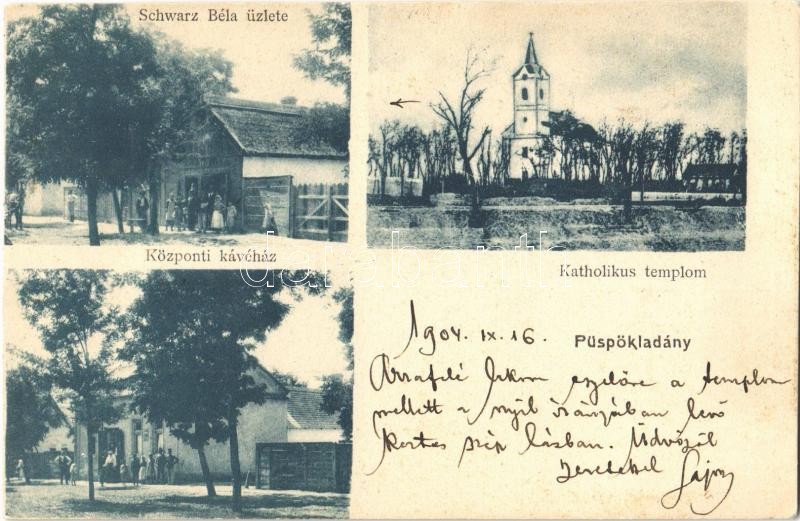 Schwarz Béla üzlete
Központi kávéház
Katholikus templom
Püspökladány
1904. IX. 16.
Arrafelé lakom egyelőre a templom
mellett a nyíl irányában levő
kertes szép házban. Üdvözöl
szeretettel Lajos